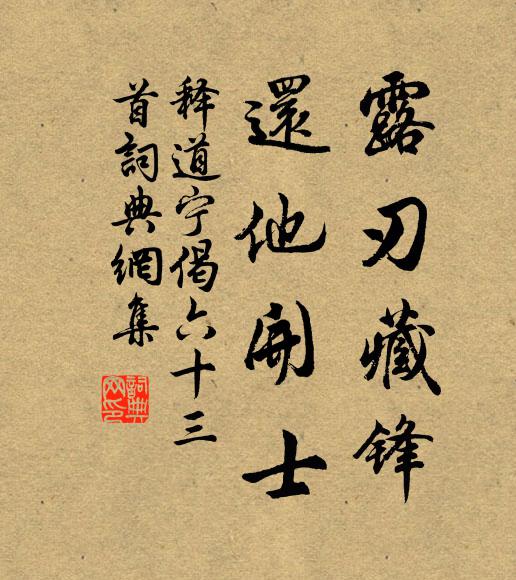 露刃藏锋
還他開士
释道宁偈六十三
首詞典網集
詞典网印